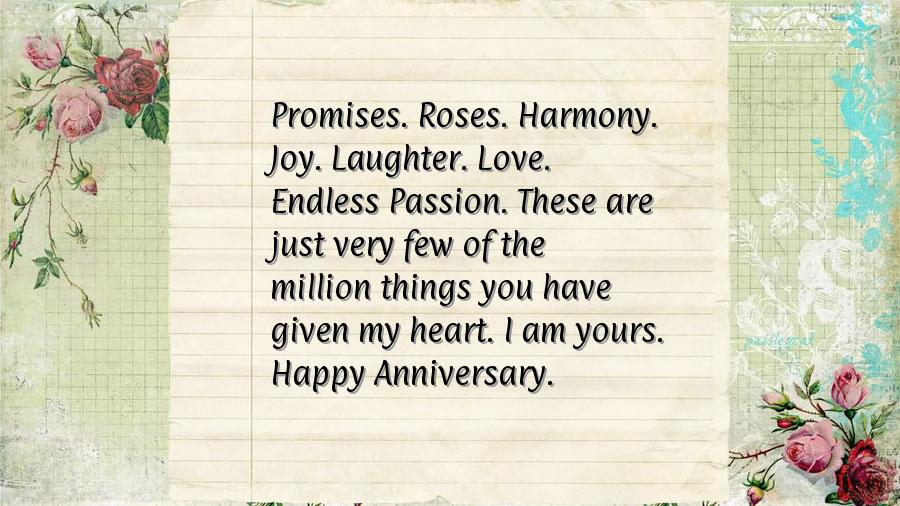 Promises. Roses. Harmony.
Joy. Laughter. Love.
Endless Passion. These are
just very few of the
million things you have
given my heart. I am yours.
Happy Anniversary.
paisleycat